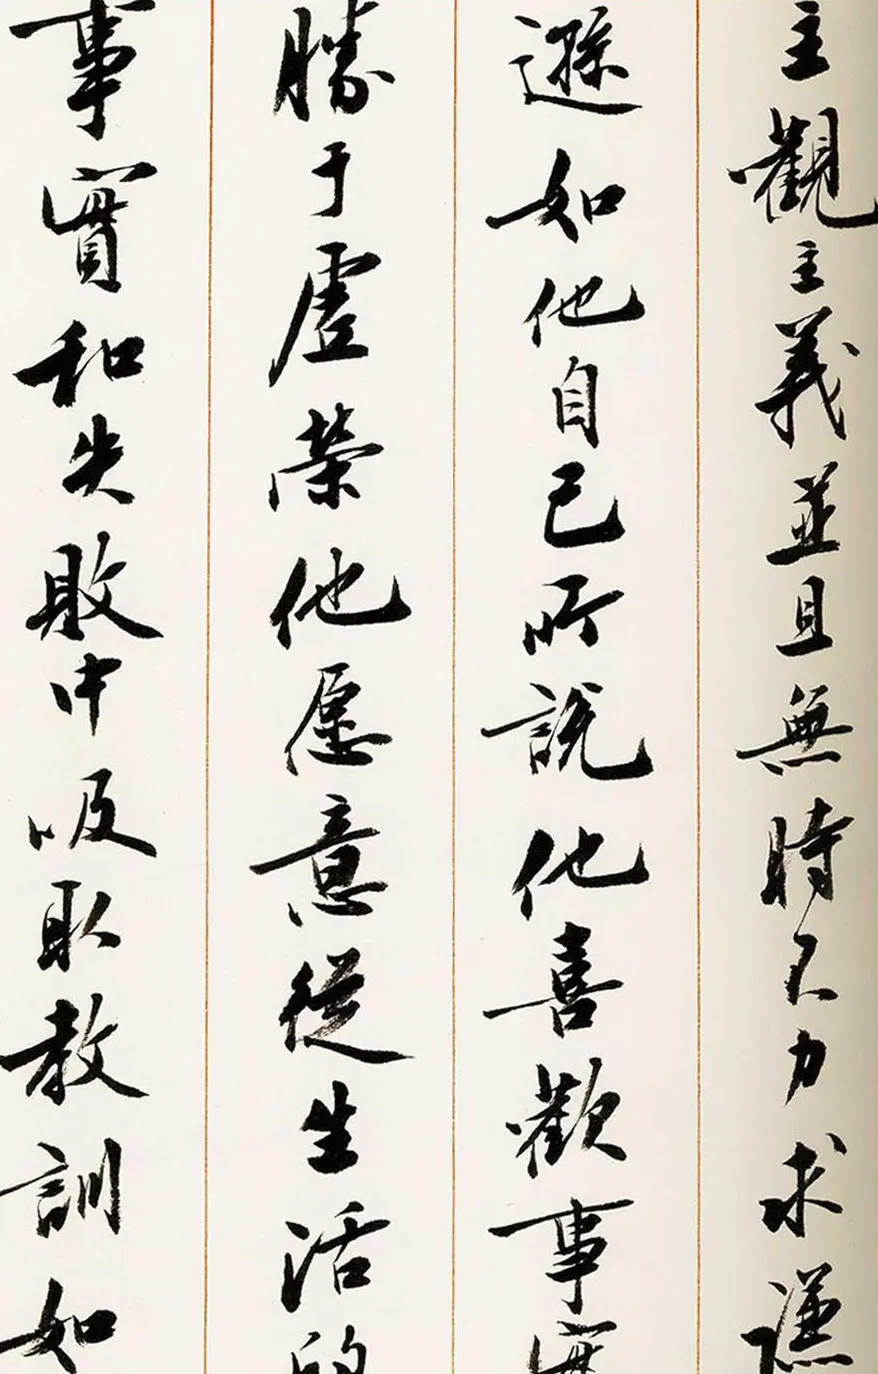 主觀主義並且無時不力求謙
遜如他自己所說他喜歡事實
勝于虛榮他愿意從生活的
事實和失敗中吸取教訓如